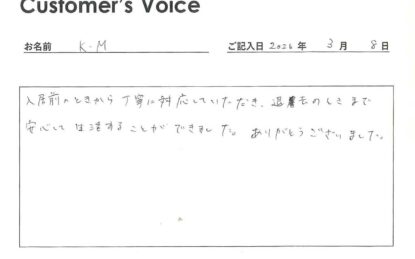 Customer's Voice
お名前 K.M ご記入日 2026 年 3 月 8 日
入居前のときから丁寧に対応していただき、退去のときまで
安心して生活することができました。ありがとうございました。